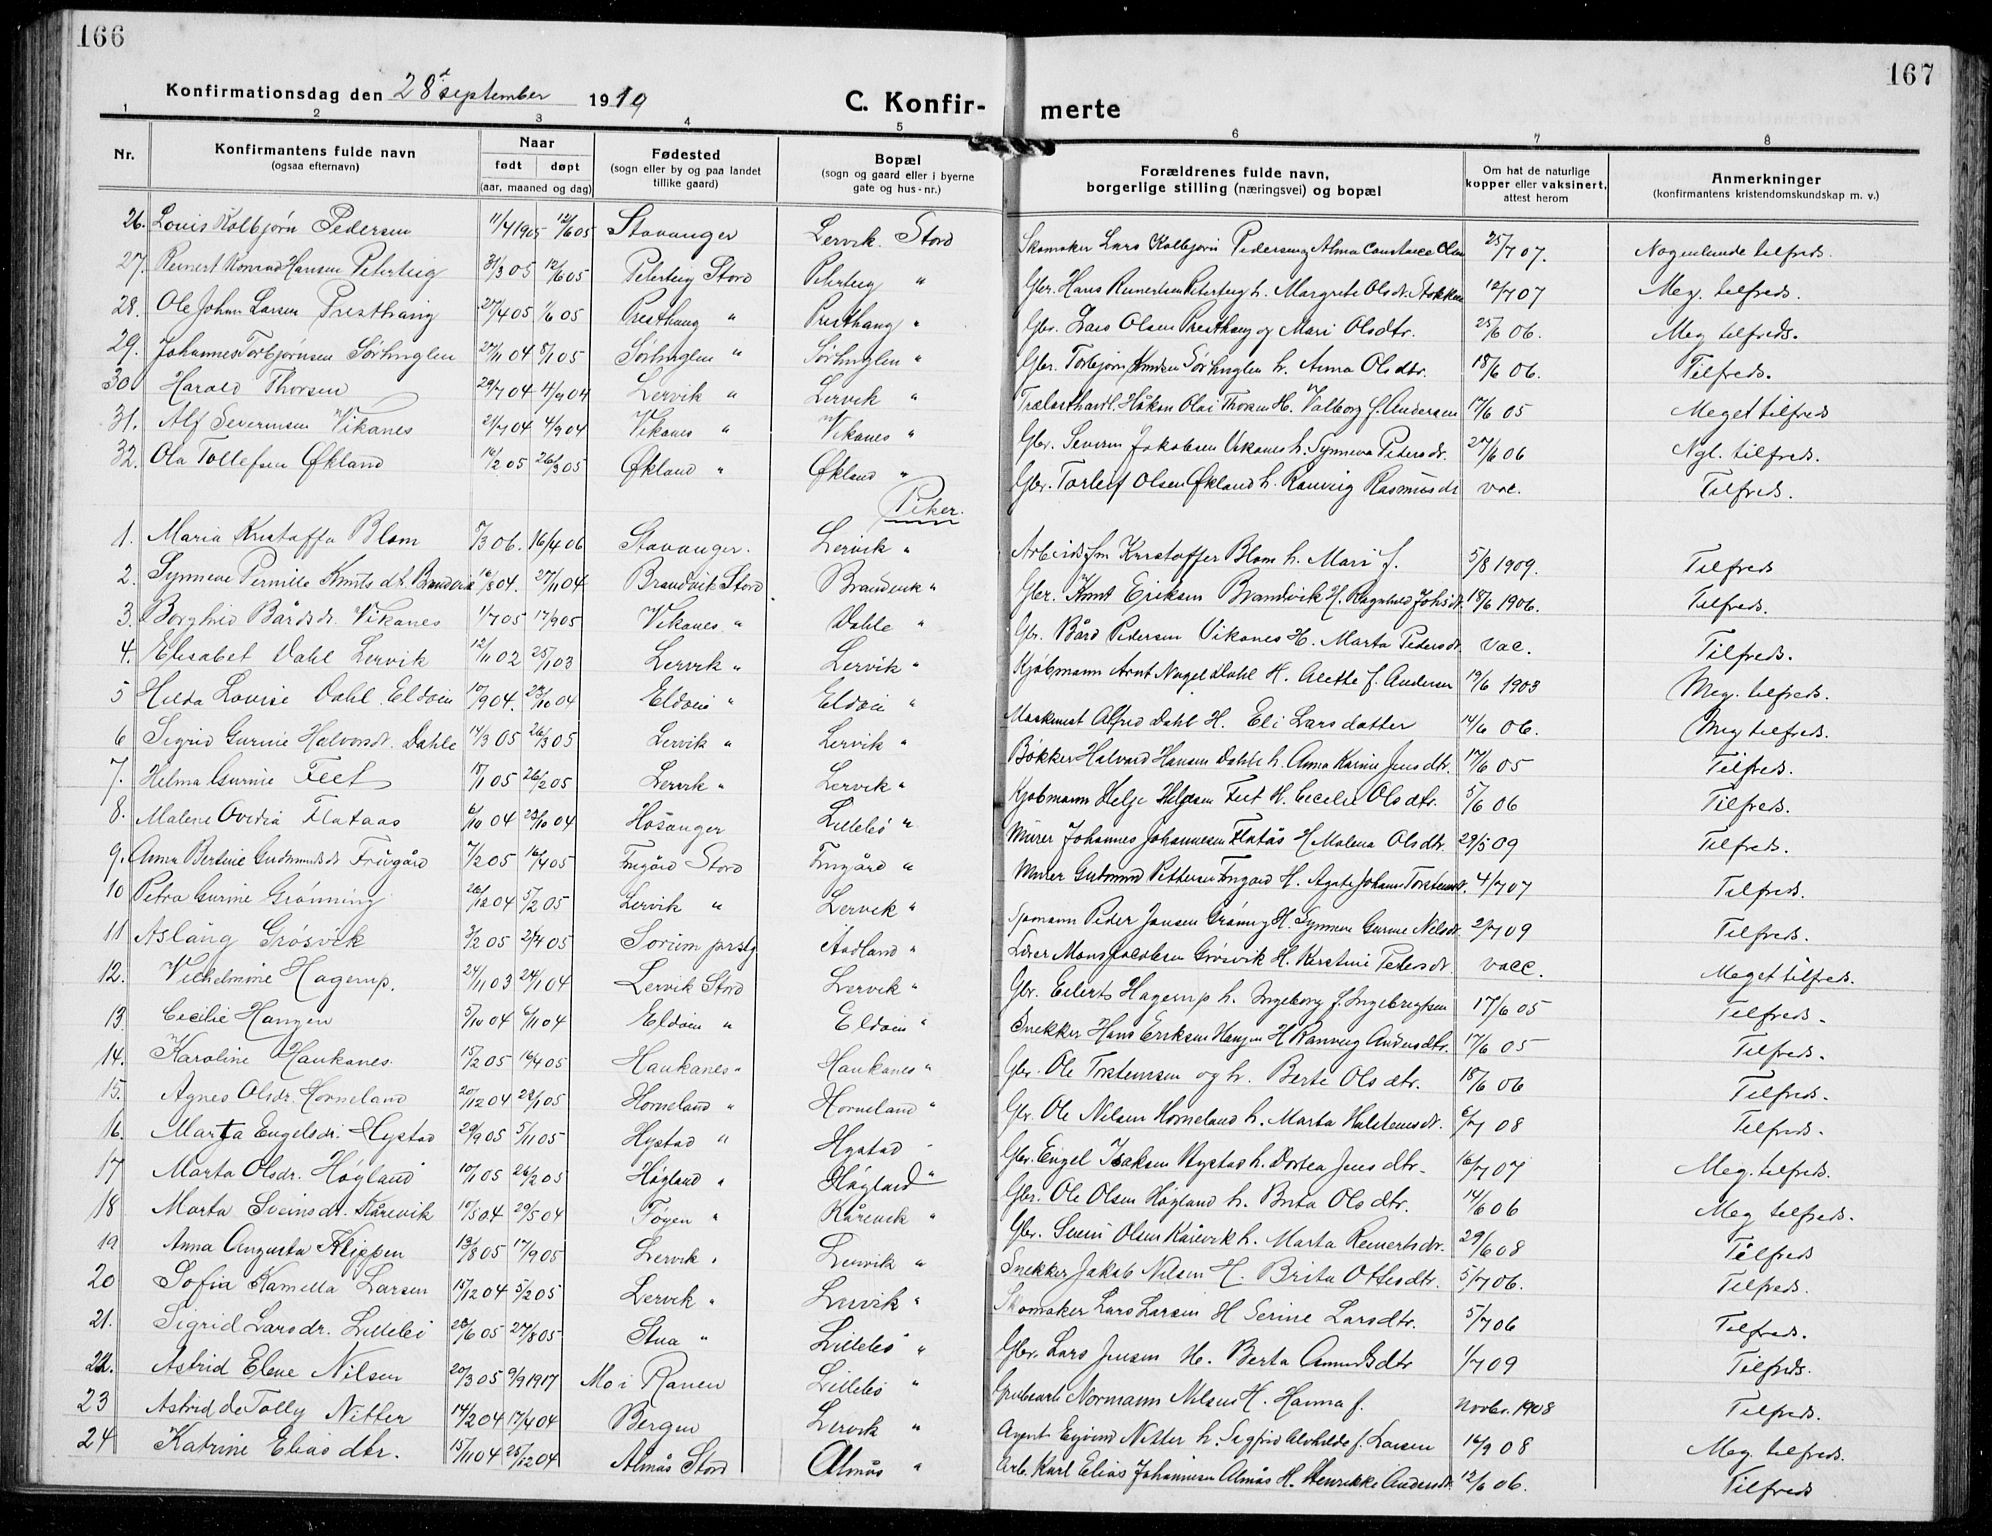 166
167
Konfirmationsdag den 28de september 1919
C. Konfir-
merte
1 2 3 4 5 6 7 8
Nr.
Konfirmantens fulde navn
(ogsaa efternavn)
Naar
født døpt
(aar, maaned og dag)
Fødested
(sogn eller by og paa landet
tillike gaard)
Bopæl
(sogn og gaard eller i byerne
gate og hus-nr.)
Forældrenes fulde navn,
borgerlige stilling (næringsvei) og bopæl
Om hat de naturlige
kopper eller vaksinert,
attest herom
Anmerkninger
(konfirmantens kristendomskundskap m. v.)
26. Louis Kolbjørn Pedersen 11/4 1905 12/6 05 Stavanger Lervik Stord Skomaker Lars Kolbjørn Pedersen og Alma Constance Olsen 25/7 07. Nogenlunde tilfreds.
27. Reinert Konrad Hansen Peterteig 31/3 05 12/6 05 Peterteig Stord Peterteig " Gbr. Hans Reinertsen Peterteig h. Margrete Olsdt. Stokken 12/7 07 Meg. tilfreds.
28. Ole Johan Larsen Presthaug 27/4 05 1/6 05 Presthaug " Presthaug " Gbr. Lars Olsen Presthaug og Mari Olsdtr. 25/6 06. Meg tilfreds.
29. Johannes Torbjørnsen Sørhuglen 27/11 04 8/1 05 Sørhuglen " Sørhuglen " Gbr. Torbjørn Knudsen Sørhuglen h. Anna Olsdtr. 18/6 06. Tilfreds.
30 Harald Thorsen 29/7 04 11/9 04 Lervik " Lervik " Trælasthandl. Håkon Olai Thorsen H. Valborg f. Andersen 17/6 05 Meget tilfreds
31. Alf Severinsen Vikanes 21/7 04 4/9 04 Vikanes " Vikanes " Gbr. Severin Jakobsen Vikanes h. Synneva Petersdr. 27/6 06 Ngl. tilfreds.
32. Ola Tollefsen Økland 16/2 05 26/3 05 Økland " Økland " Gbr. Torleif Olsen Økland h. Ranveig Rasmusdt vac. Tilfreds.
Piker.
1. Maria Kristoffa Blom 5/3 06. 16/4 06 Stavanger. Lervik " Arbeidsfm Kristoffer Blom h. Mari f. 5/8 1909. Tilfreds
2. Synneve Pernille Knutsdt. Brandvik 16/8 04. 27/11 04 Brandvik Stord Brandvik " Gbr. Knut Eriksen Brandvik H. Ragnhild Johsdt. 18/6 1906. Tilfreds.
3. Borghild Bårdsdr. Vikanes 1/7 05 17/9 05 Vikanes " Dahle " Gbr. Bård Pedersen Vikanes H. Marta Pedersdt. vac. Tilfreds.
4. Elisabet Dahl Lervik 12/11 02 25/1 03 Lervik " Lervik " Kjøbmann Arnt Nagel Dahl H. Alette f. Andersen 19/6 1903 Meg. tilfreds.
5 Hilda Lovise Dahl Eldøen 10/9 04. 23/10 04 Eldøen " Eldøen " Maskinist Alfred Dahl H. Eli Larsdatter 14/6 06. Meg tilfreds.
6 Sigrid Gurine Halvorsdt. Dahle 14/3 05 26/3 05 Lervik " Lervik " Bøkker Halvard Hansen Dahle h. Anna Karine Jensdtr. 17/6 05 Tilfreds.
7. Helma Gurine Feet 15/1 05 26/2 05 Lervik " Lervik " Kjøbmann Helje Heljesen Feet H. Cecelie Olsdtr. 5/6 06 Tilfreds.
8. Malene Ovedia Flataas 6/10 04 23/10 04 Hosanger Lillebø " Murer Johannes Johannesen Flatås H Malena Olsdtr. 29/5 09 Tilfreds.
9. Anna Bertine Gudmundsdt. Frugård 7/2 05 16/4 05 Frugård Stord Frugård " Murer Gudmund Pettersen Frugard H. Agate Johanne Torsteinsdt. 4/7 07 Tilfreds.
10 Petra Gurine Grønning 26/12 04 5/2 05 Lervik " Lervik " Sjømann Peder Jansen Grønning H. Synneve Gurine Nilsdt. 2/7 09 Tilfreds.
11 Aslaug Grøsvik 3/2 05 2/4 05 Sørum prstg Aadland " Lærer Mons Jacobsen Grøsvik H. Kirstine Pedersdt. vacc. Meget tilfreds.
12. Vilhelmine Hagerup. 24/11 03 24/1 04 Lervik Stord Lervik " Gbr. Eilerts Hagerup h. Ingeborg f. Ingebrigtsen 17/6 05 Tilfreds.
13 Cecilie Haugen 5/10 04 6/11 04 Eldøen " Eldøen " Snekker Hans Eriksen Haugen H Ranveig Andersdtr. 17/6 05 Tilfreds.
14. Karoline Haukanes. 15/2 05 16/4 05 Haukanes " Haukanes " Gbr. Ole Torsteinsen og h. Berte Olsdtr. 18/6 06 Tilfreds.
15. Agnes Olsdr. Horneland 20/12 04 22/1 05 Horneland " Horneland " Gbr. Ole Nilsen Horneland h. Marta Halsteinsdt. 6/7 08 Tilfreds.
16. Marta Engelsdr. Hystad 29/9 05 5/11 05 Hystad " Hystad " Gbr. Engel Isaksen Hystad h. Dortea Jensdtr. 16/7 07 Meg. tilfreds.
17 Marta Olsdr. Høgland 10/1 05 26/2 05 Høgland " Høgland " Gbr. Ole Olsen Høgland h. Brita Olsdtr. 14/6 06 Meg tilfreds.
18 Marta Sveinsdr. Kårevik 10/5 04 29/5 04 Føyen " Kårevik " Gbr. Svein Olsen Kårevik h. Marta Reinertsdr. 29/6 08 Tilfreds
19 Anna Augusta Klippen 13/8 05 17/9 05 Lervik " Leirvik " Snekker Jakob Nilsen H. Brita Ottesdtr. 5/7 06. Tilfreds.
20 Sofia Kamella Larsen 15/12 04 5/2 05 Lervik " Leirvik " Skomaker Lars Larsen H Serine Larsdtr. 5/7 06 Tilfreds.
21. Sigrid Larsdr. Lillebø 28/6 05 27/8 05 Stua " Lillebø " Gbr. Lars Jensen H. Berta Amundsdtr 1/7 09 Tilfreds.
22. Astrid Elene Nilsen 20/3 05 9/9 1917 Mo i Ranen Lillebø " Grubearb Normann Nilsen H. Hanna f. Novbr. 1908 Tilfreds.
23 Astrid de Tolly Nitter 14/2 04 17/4 04 Bergen Lervik " Agent Eyvind Nitter h. Sigfrid Alvhilde f. Larsen 16/9 08 Meg tilfreds.
24 Katrine Eliasdtr. 15/11 04 25/12 04 Almås Stord Almås " Arb. Karl Elias Johannesen Almås H. Henrikke Andersdt. 12/6 06. Tilfreds